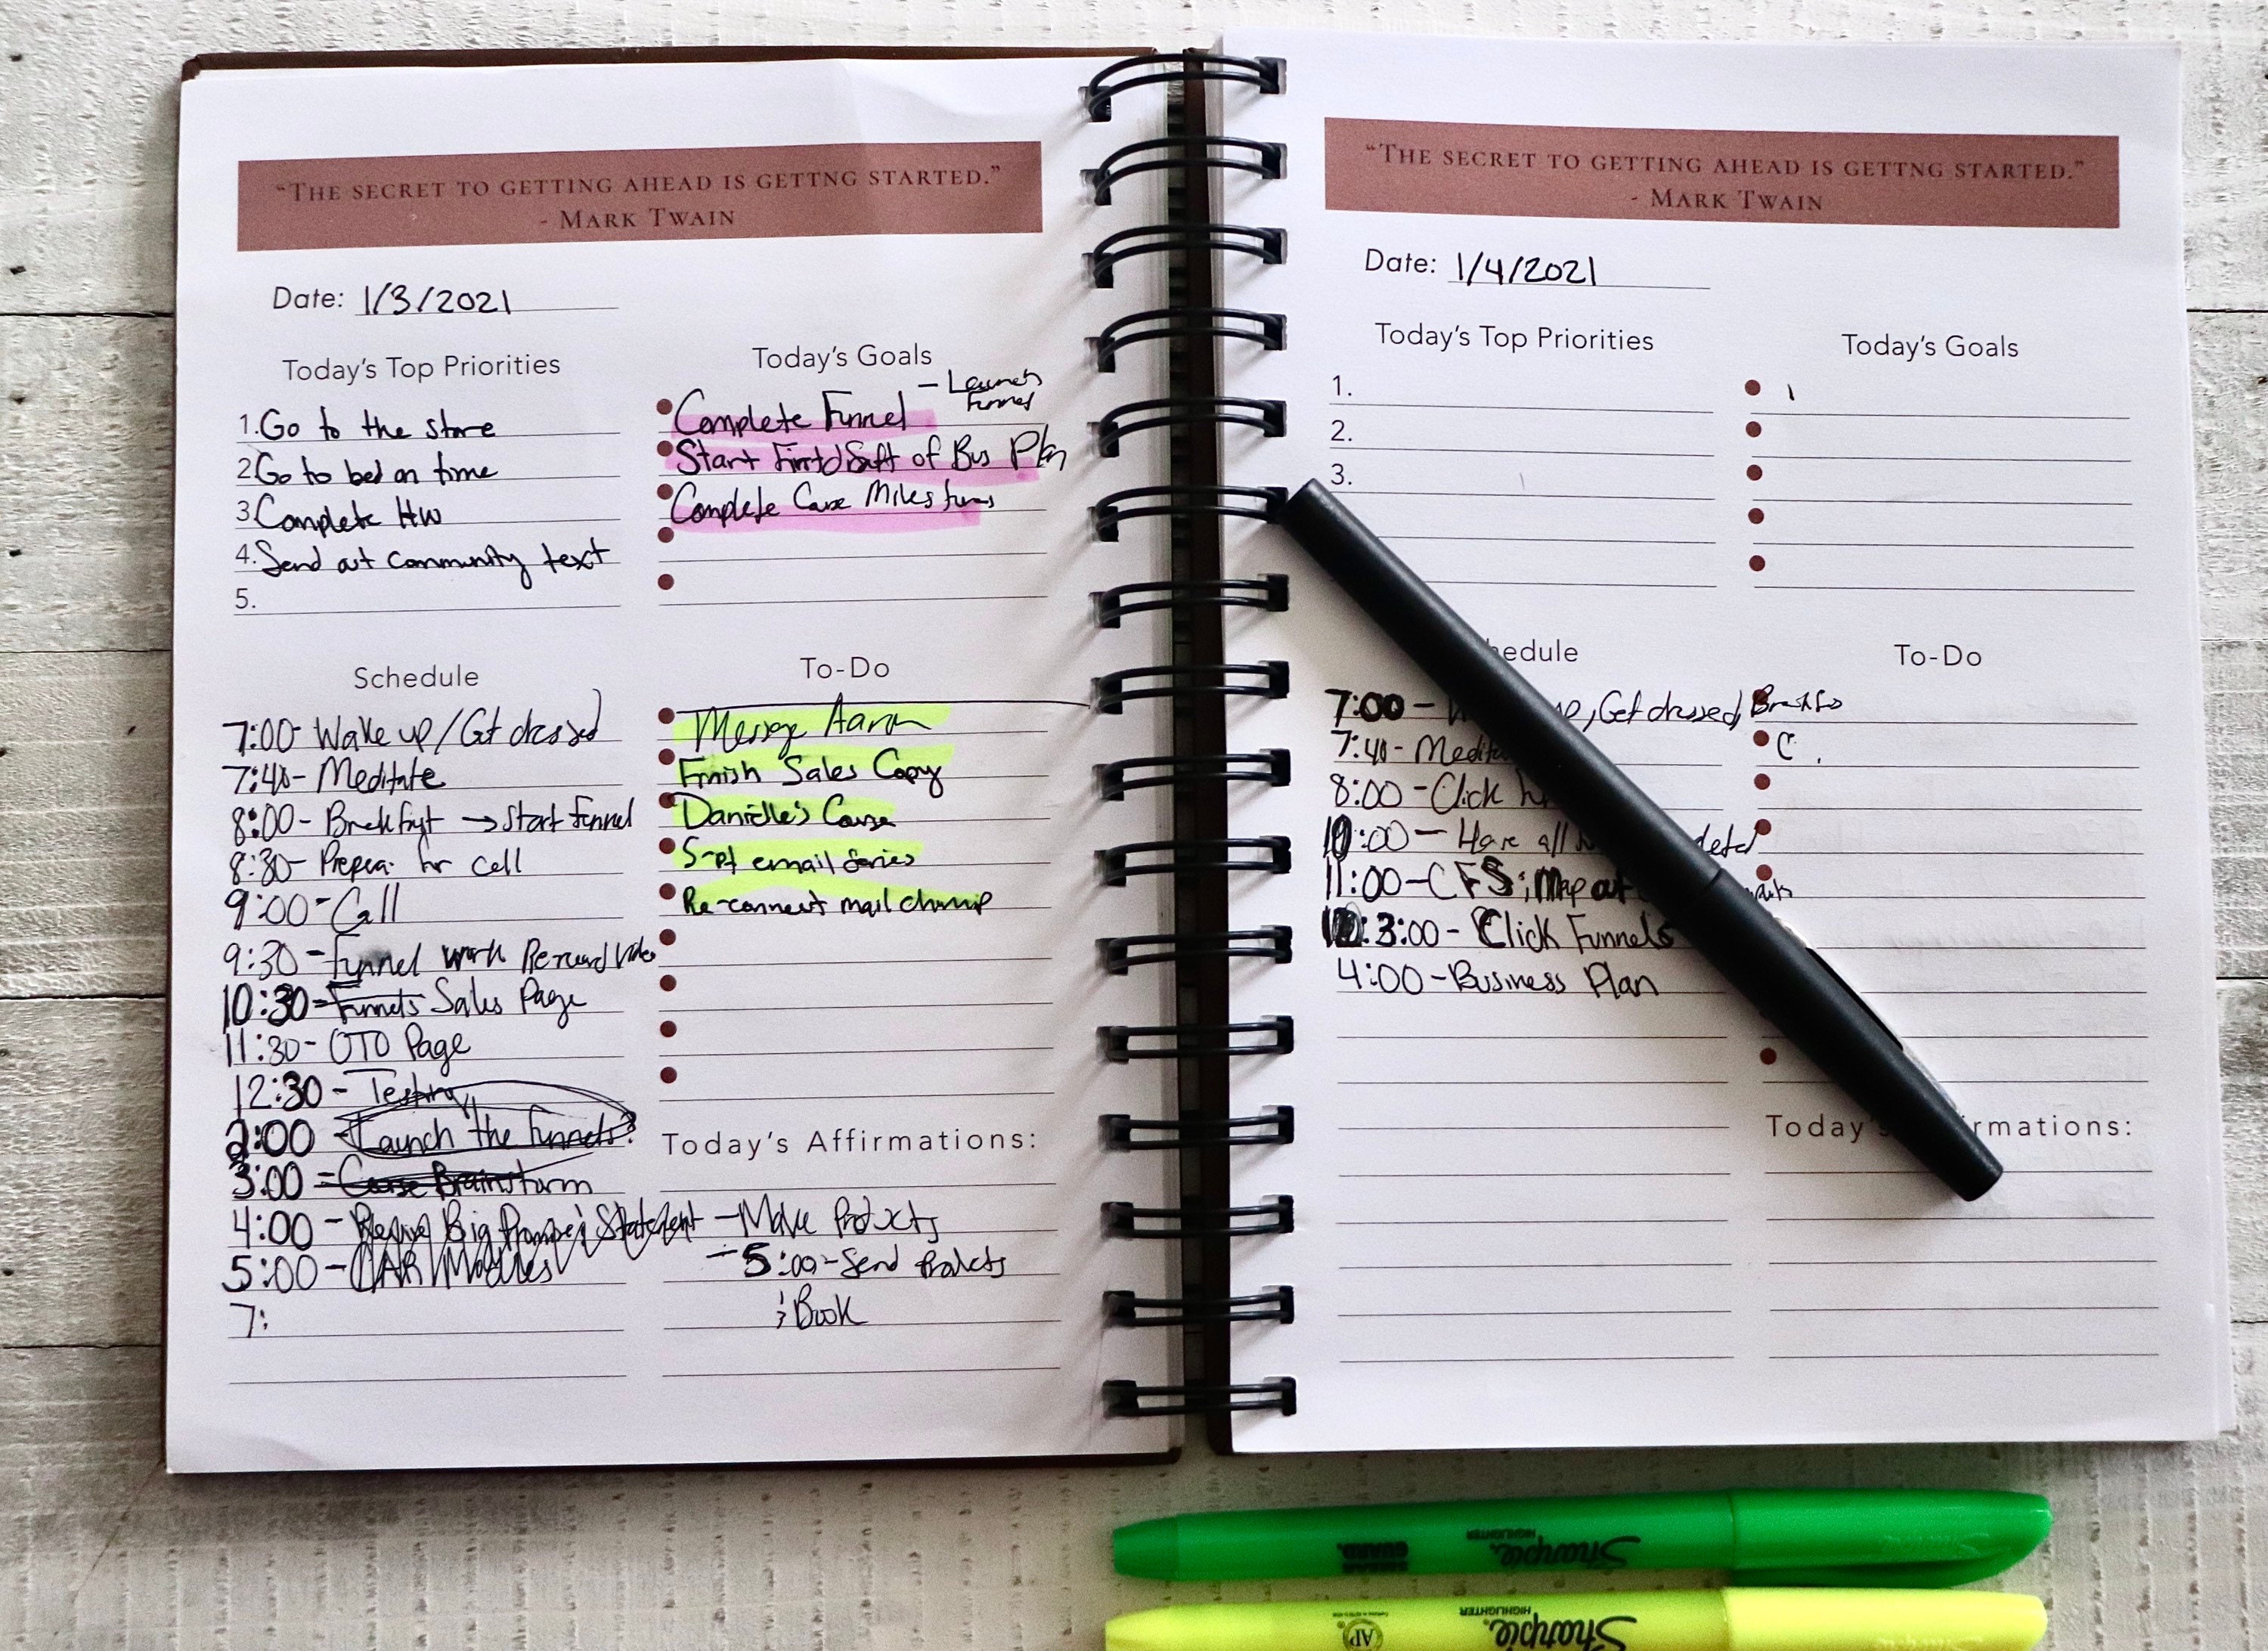 "THE SECRET TO GETTING AHEAD IS GETTNG STARTED."
- MARK TWAIN
Date: 1/3/2021
Today's Top Priorities
1. Go to the store
2. Go to bed on time
3. Complete HW
4. Send out community text
5.
Today's Goals
Complete Funnel - Launch Funnel
Start First Draft of Bus Plan
Complete
Schedule
7:00- Wake up/Get dressed
7:40- Meditate
8:00- Breakfast → Start Funnel
8:30- for call
9:00- Call
9:30- Funnel work Video
10:30- Funnels Sales Page
11:30- OTO Page
12:30- Testing
2:00 Launch the Funnels
3:00 - Brainstorm
4:00 - Big Statement - Make Products
5:00- - 5:00- Send Products
& Book
7:
To-Do
Message Aaron
Finish Sales Copy
Danielle's
email Series
Re-connect mail chimp
Today's Affirmations:
"THE SECRET TO GETTING AHEAD IS GETTNG STARTED."
- MARK TWAIN
Date: 1/4/2021
Today's Top Priorities
1.
2.
3.
Today's Goals
hedule
7:00- , Get dressed,
7:40-
8:00- Click
10:00- Have all
11:00- CFS; Map out
3:00- Click Funnels
4:00- Business Plan
To-Do
C
Today's rmations:
Sharpie
HIGHLIGHTER
SMEAR GUARD
Sharpie
HIGHLIGHTER
AP